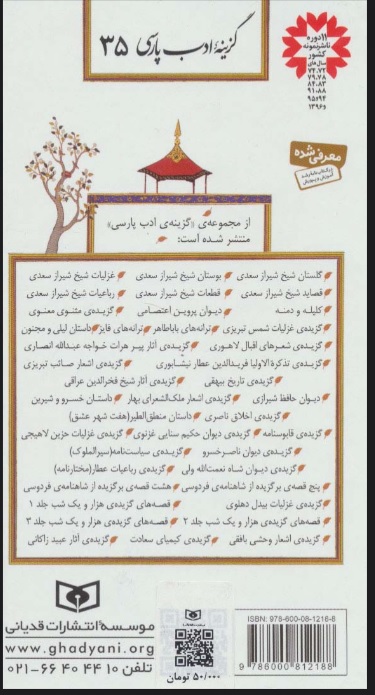 گزینهٔ ادب پارسی ۳۵
۱۱ دوره
ناشر نمونه
کشور
سال‌های
۷۲، ۷۴
۷۸، ۷۹
۸۳، ۸۴
۸۸، ۹۱
۹۴، ۹۵
و ۱۳۹۶
معرفی شده
از مجموعه‌ی «گزینه‌ی ادب پارسی»
منتشر شده است:
گلستان شیخ شیراز سعدی بوستان شیخ شیراز سعدی غزلیات شیخ شیراز سعدی
قصاید شیخ شیراز سعدی قطعات شیخ شیراز سعدی رباعیات شیخ شیراز سعدی
کلیله و دمنه دیوان پروین اعتصامی گزیده‌ی مثنوی معنوی
گزیده‌ی غزلیات شمس تبریزی ترانه‌های باباطاهر ترانه‌های فایز داستان لیلی و مجنون
گزیده‌ی شعرهای اقبال لاهوری گزیده‌ی آثار پیر هرات خواجه عبدالله انصاری
گزیده‌ی تذکرة‌الاولیا فریدالدین عطار نیشابوری گزیده‌ی اشعار صائب تبریزی
گزیده‌ی تاریخ بیهقی گزیده‌ی آثار شیخ فخرالدین عراقی
دیوان حافظ شیرازی گزیده‌ی اشعار ملک‌الشعرای بهار داستان خسرو و شیرین
گزیده‌ی اخلاق ناصری داستان منطق‌الطیر(هفت شهر عشق)
گزیده‌ی قابوسنامه گزیده‌ی دیوان حکیم سنایی غزنوی گزیده‌ی غزلیات حزین لاهیجی
گزیده‌ی دیوان ناصرخسرو گزیده‌ی سیاست‌نامه(سیرالملوک)
گزیده‌ی دیوان شاه نعمت‌الله ولی گزیده‌ی رباعیات عطار(مختارنامه)
پنج قصه‌ی برگزیده از شاهنامه‌ی فردوسی هشت قصه‌ی برگزیده از شاهنامه‌ی فردوسی
گزیده‌ی غزلیات بیدل دهلوی قصه‌های گزیده‌ی هزار و یک شب جلد ۱
قصه‌های گزیده‌ی هزار و یک شب جلد ۲ قصه‌های گزیده‌ی هزار و یک شب جلد ۳
گزیده‌ی اشعار وحشی بافقی گزیده‌ی کیمیای سعادت گزیده‌ی آثار عبید زاکانی
موسسهٔ انتشارات قدیانی
www.ghadyani.org
تلفن ۱۰ ۴۴ ۴۰ ۶۶-۰۲۱
۵۰/۰۰۰ تومان
ISBN: 978-600-08-1218-8
9 786000 812188